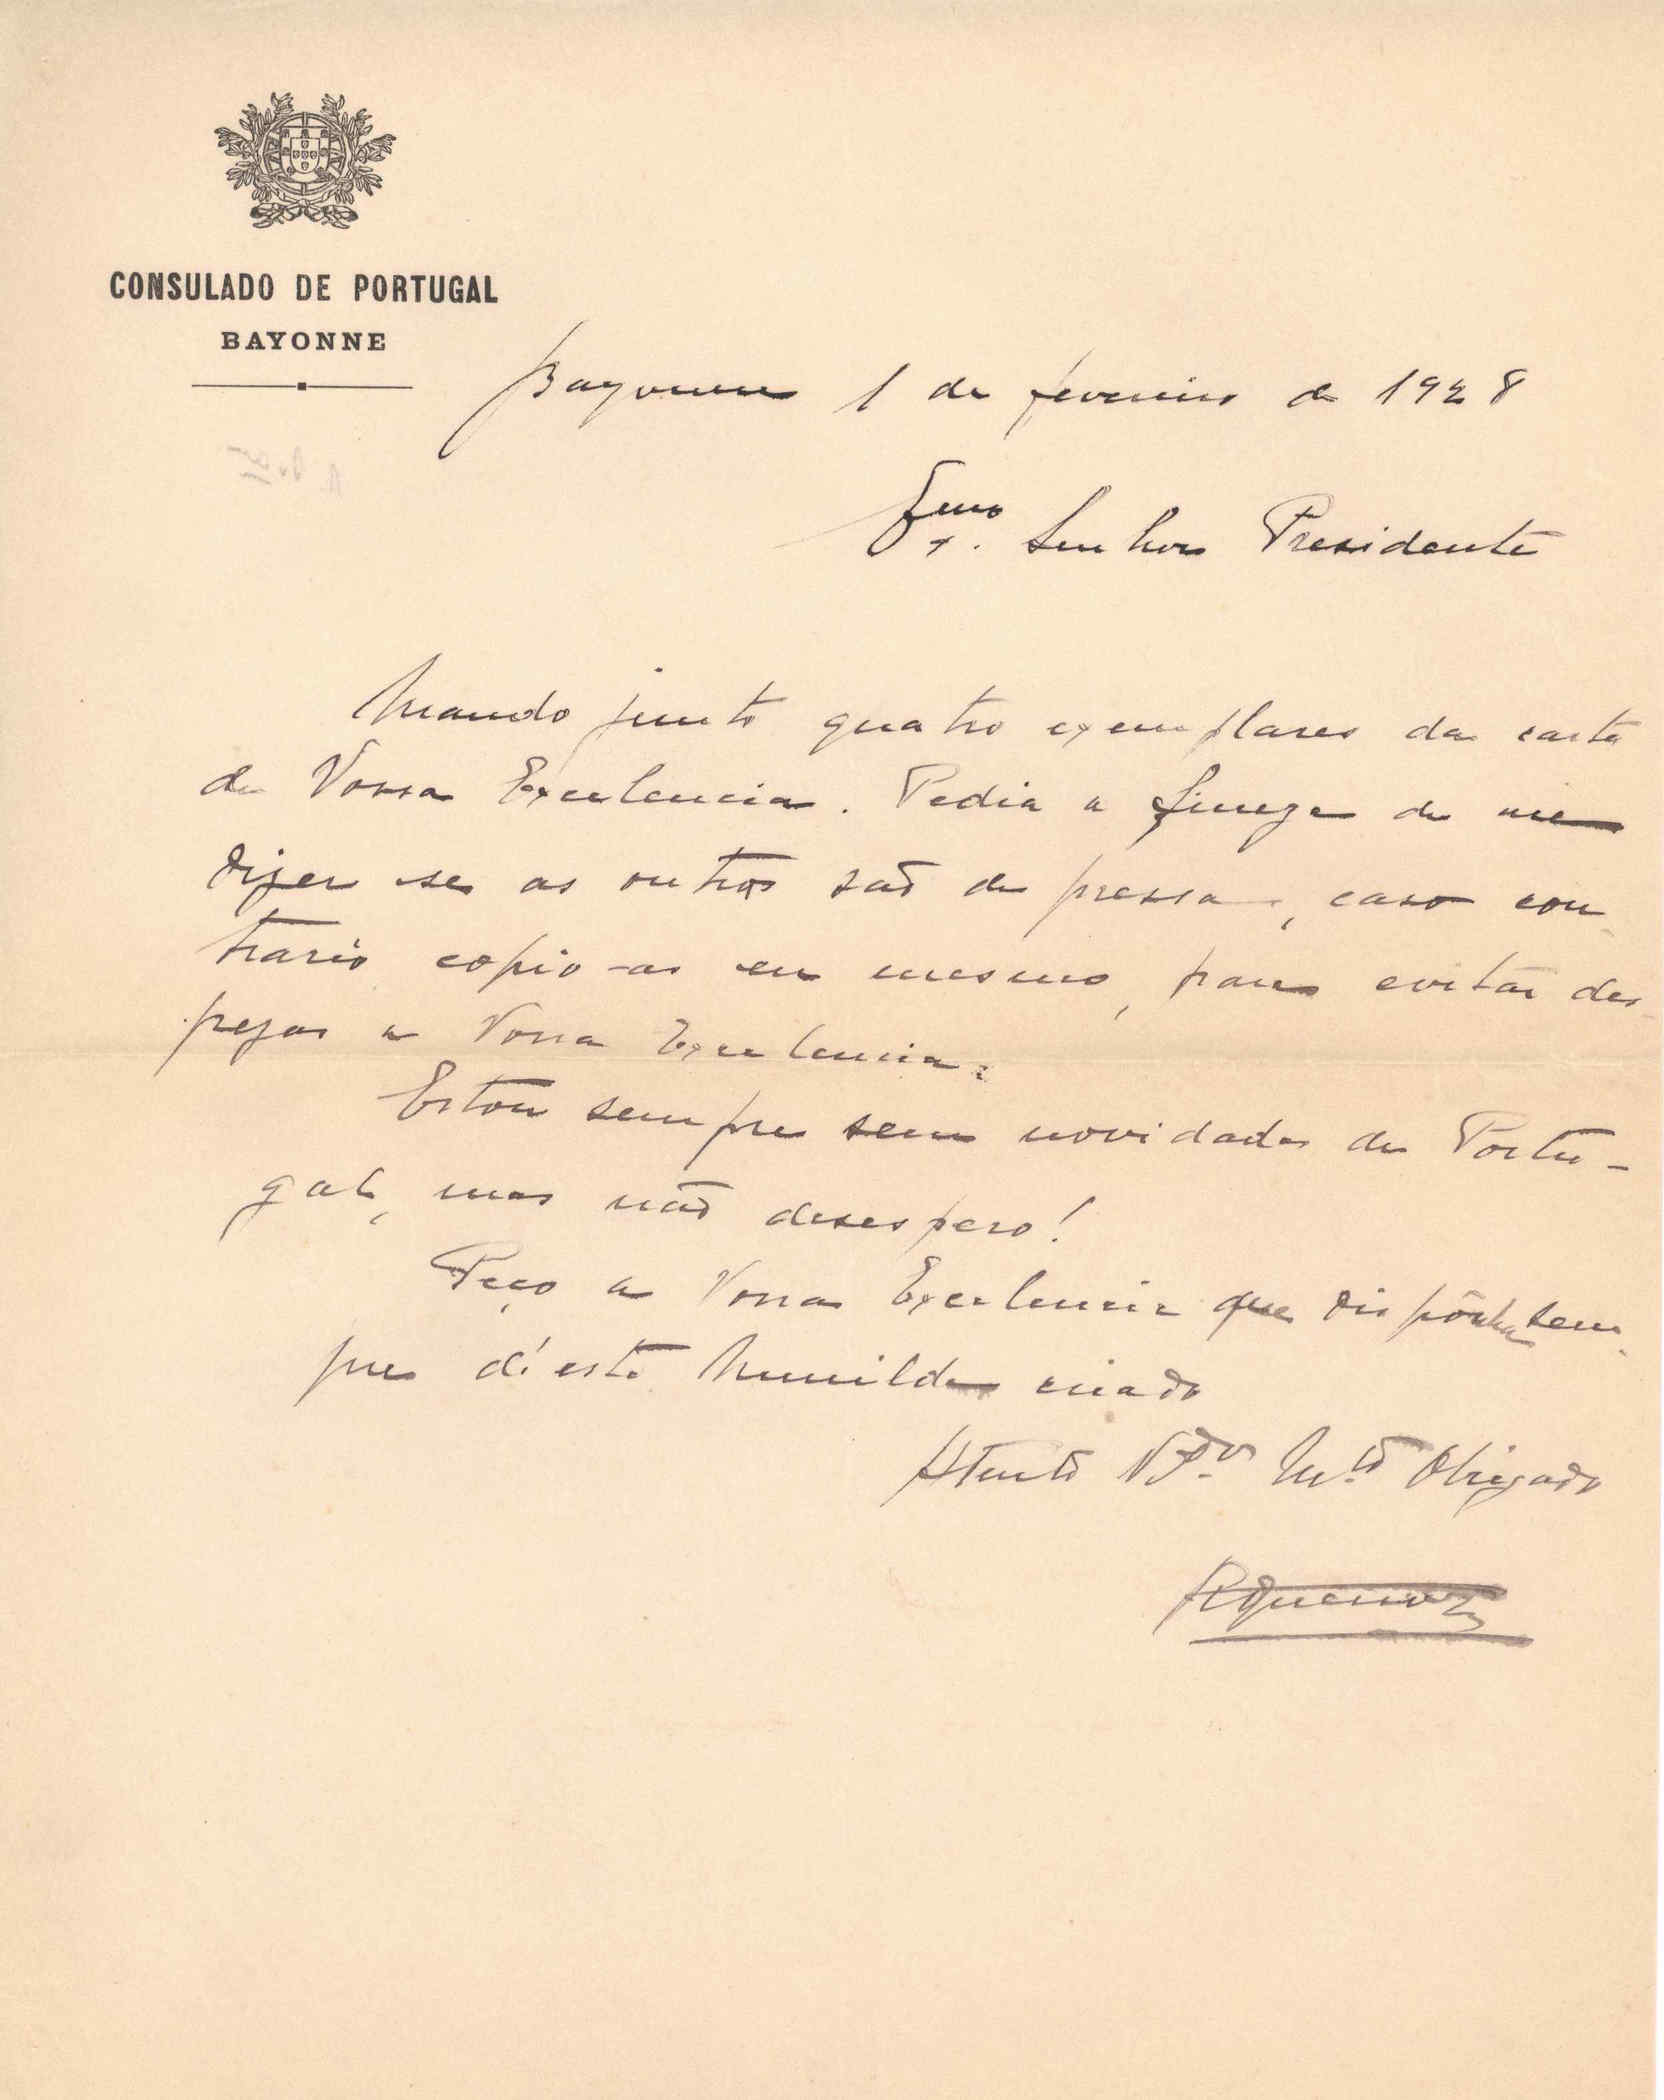 CONSULADO DE PORTUGAL
BAYONNE
Bayonne 1 de fevereiro de 1928
Exmo. Senhor Presidente
Mando junto quatro exemplares da carta
de Vossa Excelencia. Pedia a fineza de me
dizer se as outras são de pressa, caso con
trario copio-as eu mesmo, para evitar des
pezas a Vossa Excelencia.
Estou sempre sem novidades de Portu-
gal, mas não desespero!
Peço a Vossa Excelencia que disponha sem
pre d'este humilde criado
Atento Vdor Mto Obrigado